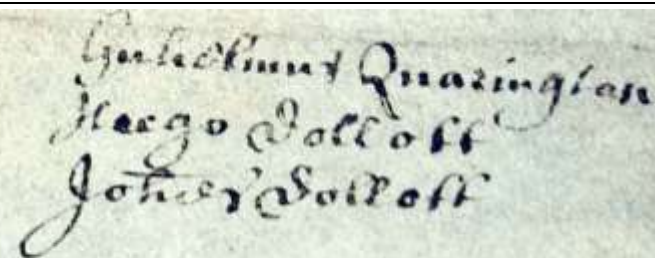 Gulielmus Quarington
Hugo Tollott
Joh̃es Tollott